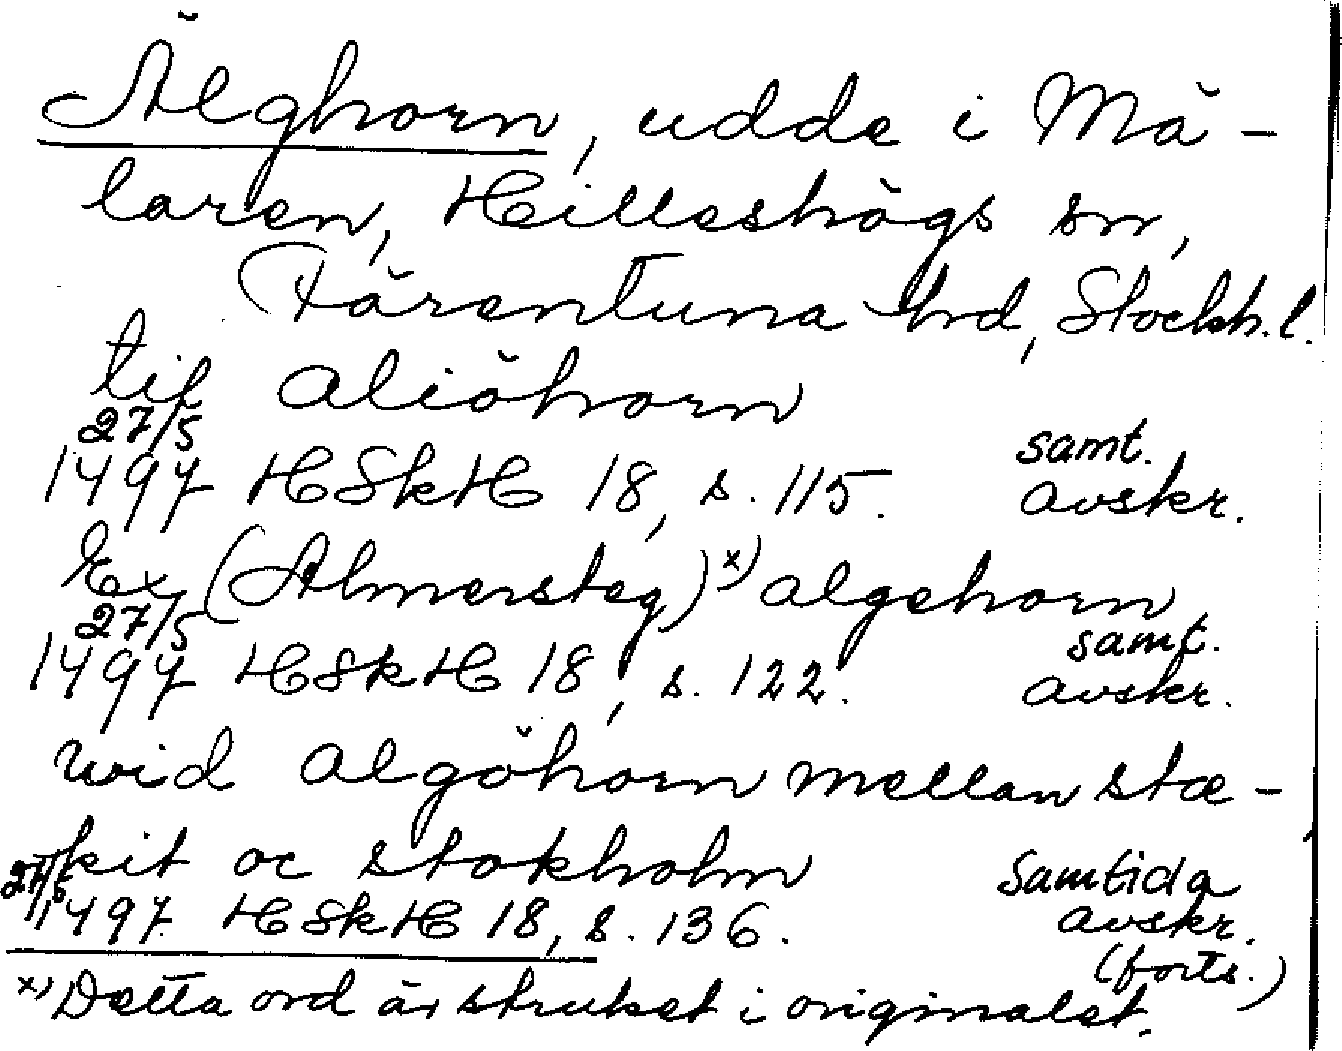 Älghorn, udde i Mä-
laren, Hilleshögs sn,
Färentuna hrd, Stockh. l.
til aliöhorn
27/5 samt.
1497 HSkH 18, s. 115. avskr.
Ex (Almersteg)x) algehorn
27/5 samt.
1497 HSkH 18, s. 122. avskr.
wid algöhorn mellan stæ-
kit oc stokholm Samtida
1497 HSkH 18, s. 136. avskr.
(forts.)
x) Detta ord är struket i originalet.